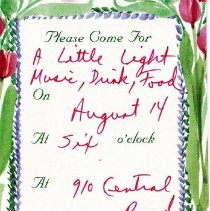 Please Come For
A Little Light
Music, Drink, Food
On
August 14
At Six o'clock
At 910 Central